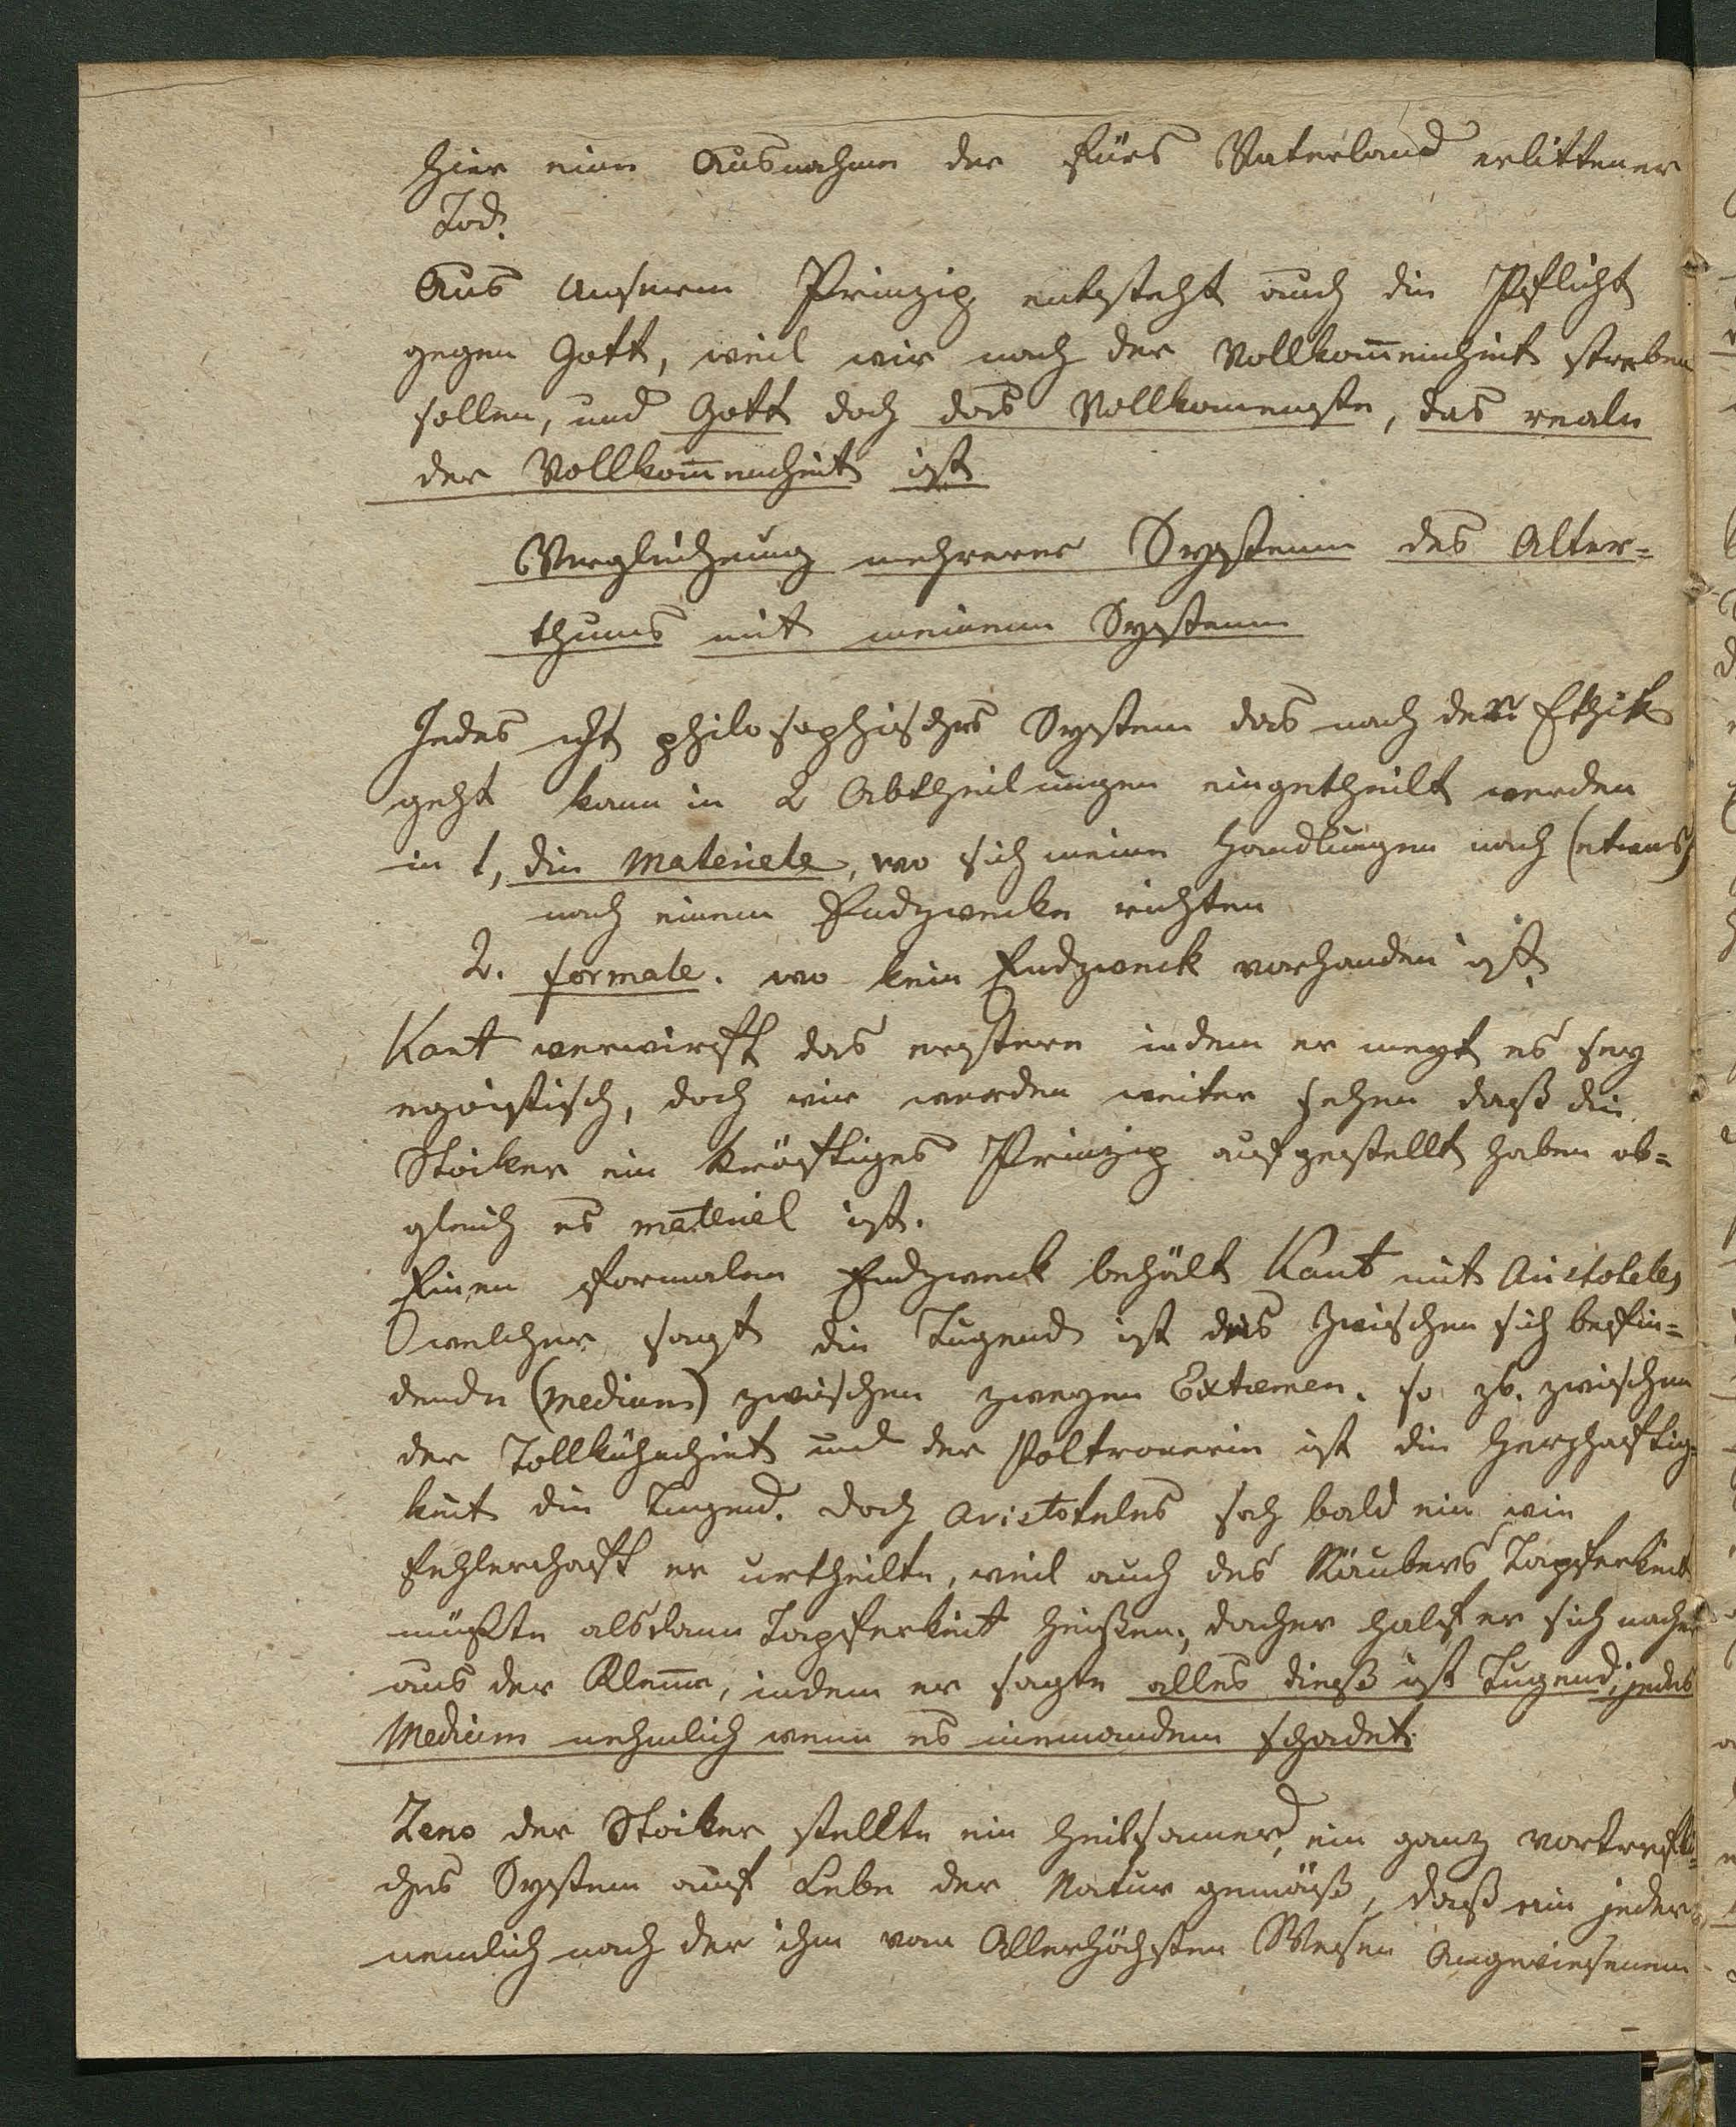 hier eine Ausnahme der fürs Vaterland erlittener
Tod.
Aus unserem Prinzip entsteht auch die Pflicht
gegen Gott, weil wir nach der Vollkom̅enheit streben
sollen, und Gott doch das Vollkomenste, das reale
der Vollkom̅enheit ist
Vergleichung mehrerer Systeme des Alter=
thums mit meinem Systeme
Jedes ächt philosophisches System das nach der Ethik
geht kann in 2 Abtheilungen eingetheilt werden
in 1, die Materiele, wo sich meine Handlungen nach (etwas)
nach einem Endzwecke richten
2. formale. wo kein Endzweck vorhanden ist.
Kant verwirft das erstere indem er meynt es sey
egoistisch, doch wir werden weiter sehen daß die
Stoiker ein kräftiges Prinzip aufgestellt haben ob=
gleich es materiel ist.
Einen formalen Endzweck behält Kant mit Aristoteles
welcher sagt die Tugend ist das zwischen sich befin=
dende (Medium) zwischen zweyen Extremen. so zb. zwischen
der Tollkühnheit und der Poltronerie ist die Herzhaftig=
keit die Tugend. Doch Aristoteles sah bald ein wie
fehlerhaft er urtheilte, weil auch des Räubers Tapferkeit
müßte alsdann Tapferkeit heißen, daher half er sich nacher
aus der Klem̅e, indem er sagte alles dieß ist Tugend, jedes
Medium nehmlich wenn es niemandem schadet.
Zeno der Stoiker stellte ein heilsames, ein ganz vortrefli=
ches System auf Lebe der Natur gemäß, daß ein jeder
nemlich nach der ihm vom Allerhöchsten Wesen Angewiesenen